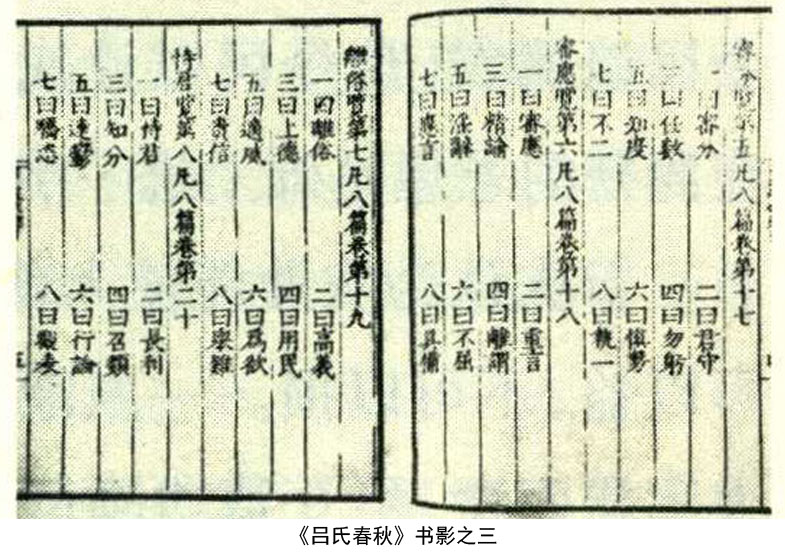 審分覽第五凡八篇卷第十七
一曰審分 二曰君守
三曰任數 四曰勿躬
五曰知度 六曰慎勢
七曰不二 八曰執一
審應覽第六凡八篇卷第十八
一曰審應 二曰重言
三曰精諭 四曰離謂
五曰淫辭 六曰不屈
七曰應言 八曰具備
離俗覽第七凡八篇卷第十九
一曰離俗 二曰高義
三曰上德 四曰用民
五曰適威 六曰爲欲
七曰貴信 八曰舉難
恃君覽第八凡八篇卷第二十
一曰恃君 二曰長利
三曰知分 四曰召類
五曰達鬱 六曰行論
七曰驕恣 八曰觀表
《吕氏春秋》书影之三